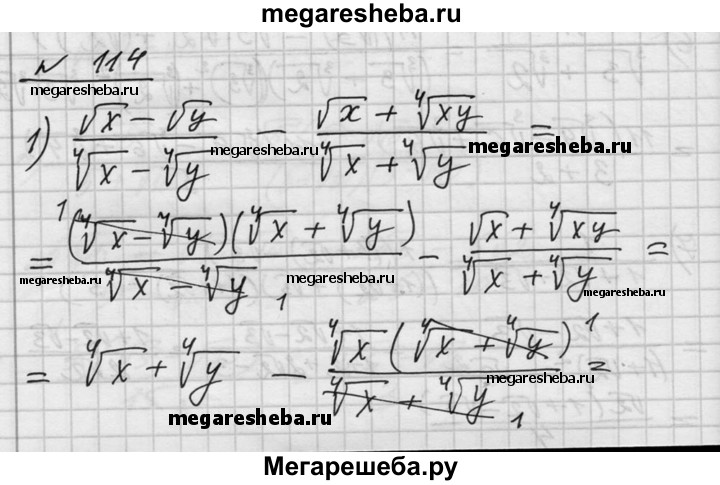 megaresheba.ru
№ 114
megaresheba.ru
1) (√x − √y)/(⁴√x − ⁴√y) − (√x + ⁴√xy)/(⁴√x + ⁴√y) =
megaresheba.ru megaresheba.ru
= ((⁴√x − ⁴√y)¹(⁴√x + ⁴√y))/(⁴√x − ⁴√y ₁) − (√x + ⁴√xy)/(⁴√x + ⁴√y) =
megaresheba.ru megaresheba.ru megaresheba.ru
= ⁴√x + ⁴√y − (⁴√x (⁴√x + ⁴√y)¹)/(⁴√x + ⁴√y ₁) =
megaresheba.ru
megaresheba.ru
Мегарешеба.ру